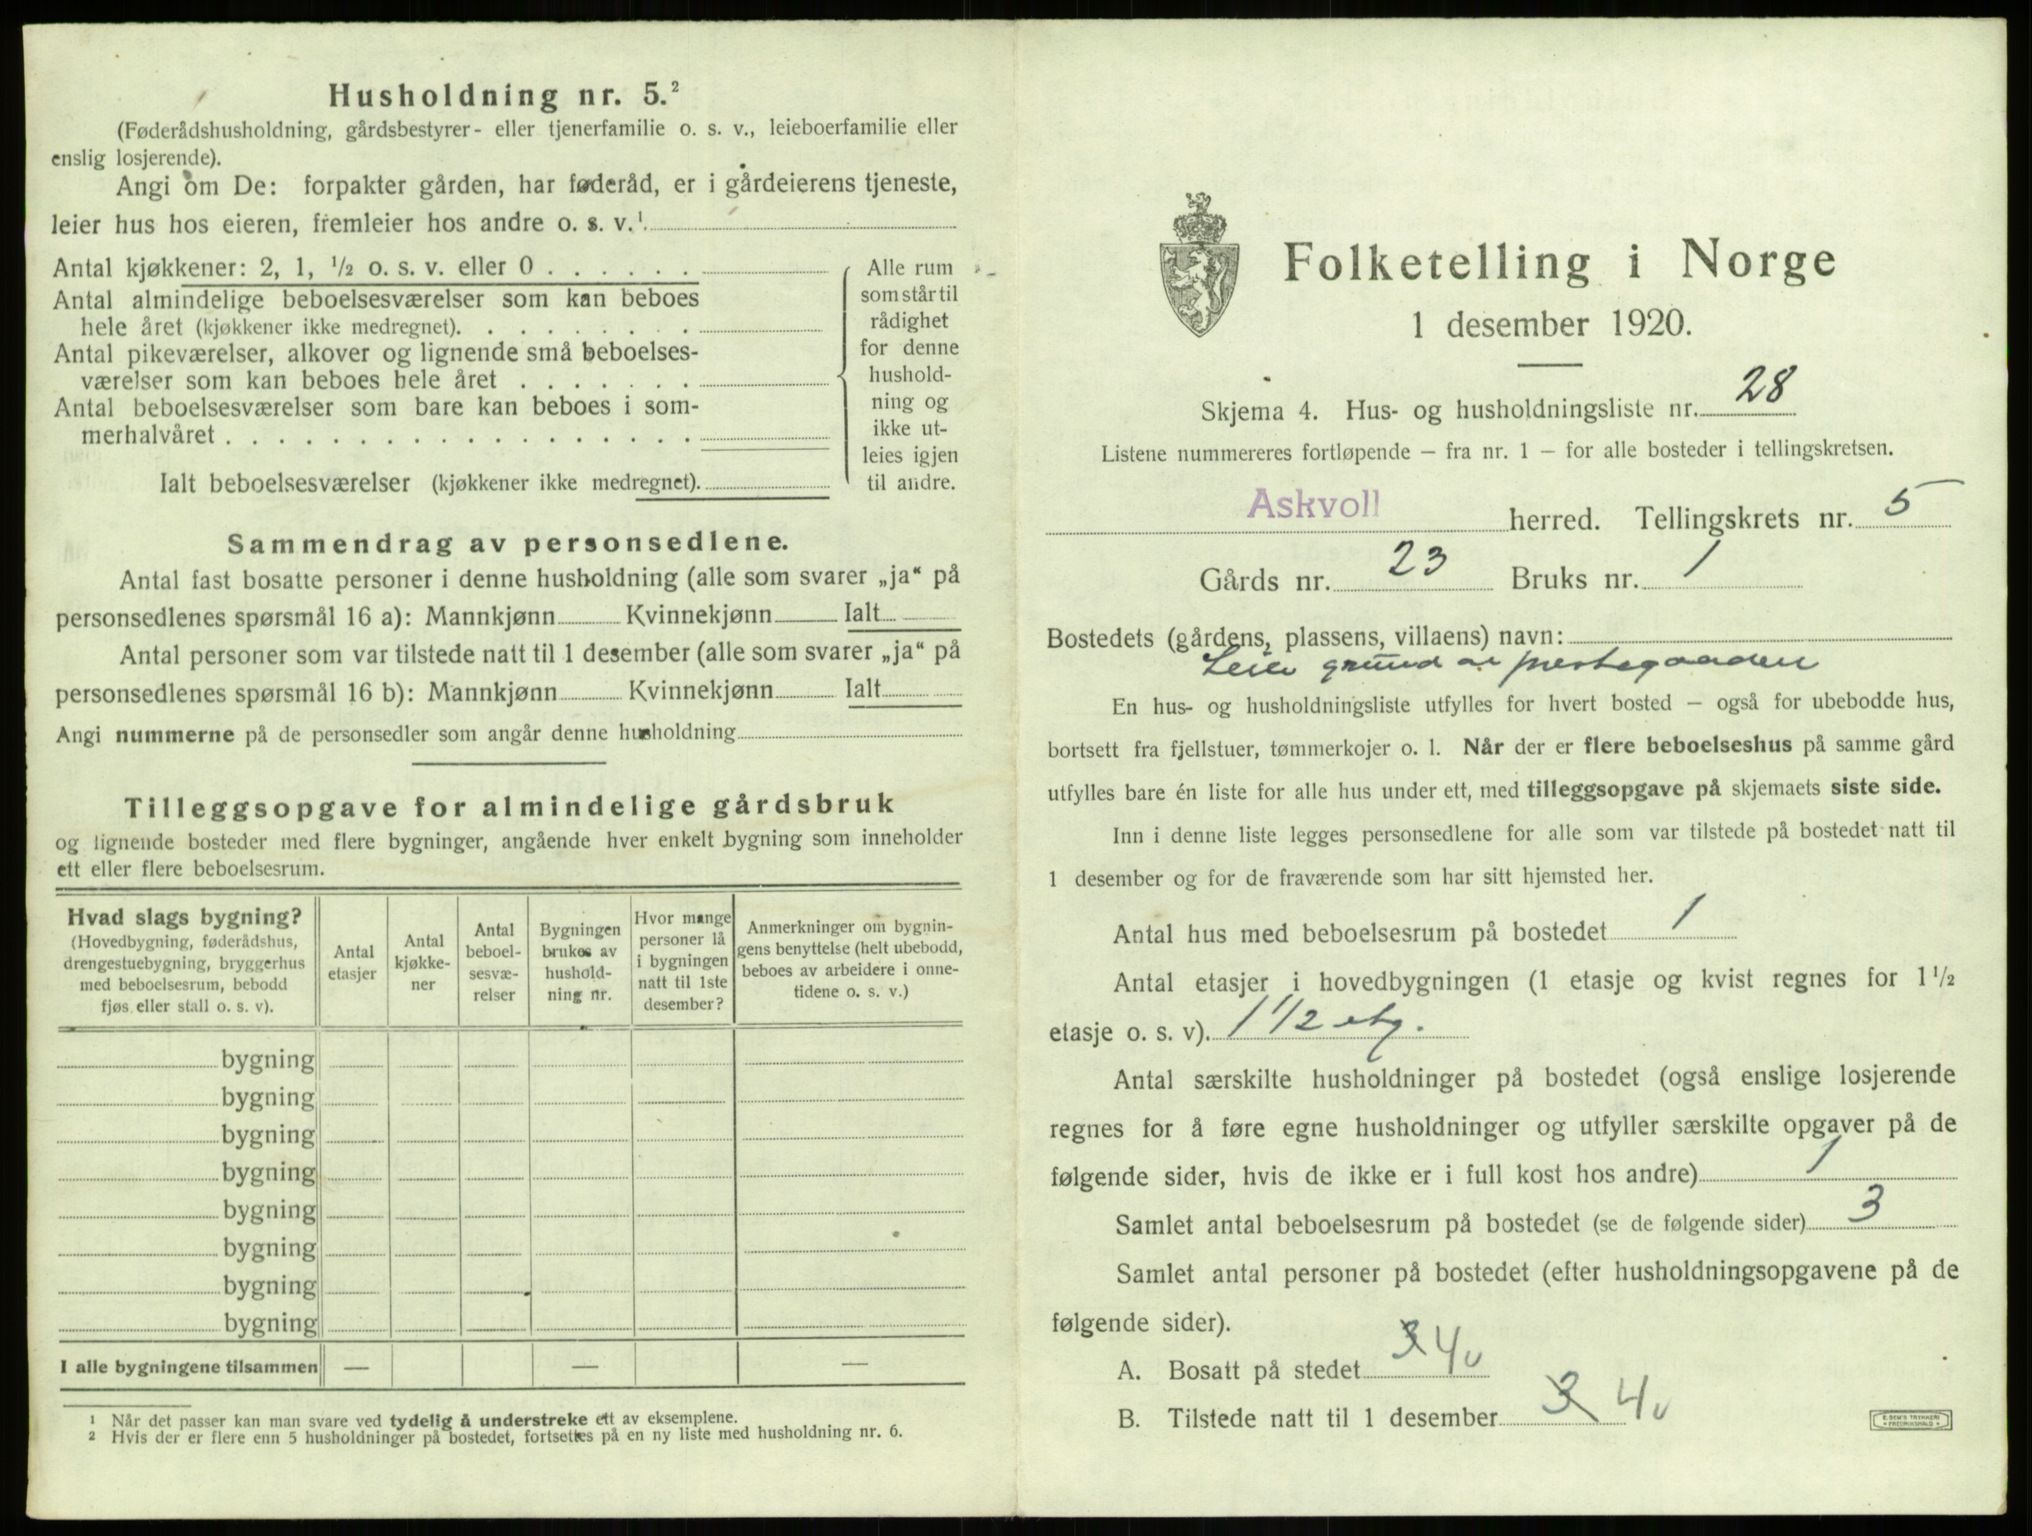 Husholdning nr. 5.²
(Føderådshusholdning, gårdsbestyrer- eller tjenerfamilie o. s. v., leieboerfamilie eller
enslig losjerende).
Angi om De: forpakter gården, har føderåd, er i gårdeierens tjeneste,
leier hus hos eieren, fremleier hos andre o. s. v.¹
Antal kjøkkener: 2, 1, ½ o. s. v. eller 0
Antal almindelige beboelsesværelser som kan beboes
hele året (kjøkkener ikke medregnet).
Antal pikeværelser, alkover og lignende små beboelses-
værelser som kan beboes hele året
Antal beboelsesværelser som bare kan beboes i som-
merhalvåret
Ialt beboelsesværelser (kjøkkener ikke medregnet).
Alle rum
som står til
rådighet
for denne
hushold-
ning og
ikke ut-
leies igjen
til andre.
Sammendrag av personsedlene.
Antal fast bosatte personer i denne husholdning (alle som svarer „ja“ på
personsedlenes spørsmål 16 a): Mannkjønn Kvinnekjønn Ialt
Antal personer som var tilstede natt til 1 desember (alle som svarer „ja“ på
personsedlenes spørsmål 16 b): Mannkjønn Kvinnekjønn Ialt
Angi nummerne på de personsedler som angår denne husholdning
Tilleggsopgave for almindelige gårdsbruk
og lignende bosteder med flere bygninger, angående hver enkelt bygning som inneholder
ett eller flere beboelsesrum.
Hvad slags bygning?
(Hovedbygning, føderådshus,
drengestuebygning, bryggerhus
med beboelsesrum, bebodd
fjøs eller stall o. s. v).
Antal
etasjer
Antal
kjøkke-
ner
Antal
beboel-
sesvæ-
relser
Bygningen
brukes av
hushold-
ning nr.
Hvor mange
personer lå
i bygningen
natt til 1ste
desember?
Anmerkninger om bygnin-
gens benyttelse (helt ubebodd,
beboes av arbeidere i onne-
tidene o. s. v.)
bygning
bygning
bygning
bygning
bygning
bygning
bygning
bygning
I alle bygningene tilsammen — — —
¹ Når det passer kan man svare ved tydelig å understreke ett av eksemplene.
² Hvis der er flere enn 5 husholdninger på bostedet, fortsettes på en ny liste med husholdning nr. 6.
Folketelling i Norge
1 desember 1920.
Skjema 4. Hus- og husholdningsliste nr. 28
Listene nummereres fortløpende – fra nr. 1 – for alle bosteder i tellingskretsen.
Askvoll herred. Tellingskrets nr. 5
Gårds nr. 23 Bruks nr. 1
Bostedets (gårdens, plassens, villaens) navn:
Leier grund av prestegaarden
En hus- og husholdningsliste utfylles for hvert bosted – også for ubebodde hus,
bortsett fra fjellstuer, tømmerkojer o. l. Når der er flere beboelseshus på samme gård
utfylles bare én liste for alle hus under ett, med tilleggsopgave på skjemaets siste side.
Inn i denne liste legges personsedlene for alle som var tilstede på bostedet natt til
1 desember og for de fraværende som har sitt hjemsted her.
Antal hus med beboelsesrum på bostedet 1
Antal etasjer i hovedbygningen (1 etasje og kvist regnes for 1 ½
etasje o. s. v). 1 1/2 etg.
Antal særskilte husholdninger på bostedet (også enslige losjerende
regnes for å føre egne husholdninger og utfyller særskilte opgaver på de
følgende sider, hvis de ikke er i full kost hos andre) 1
Samlet antal beboelsesrum på bostedet (se de følgende sider) 3
Samlet antal personer på bostedet (efter husholdningsopgavene på de
følgende sider).
A. Bosatt på stedet 3 4 v
B. Tilstede natt til 1 desember 3 4 v
E. SEM'S TRYKKERI
FREDRIKSHALD